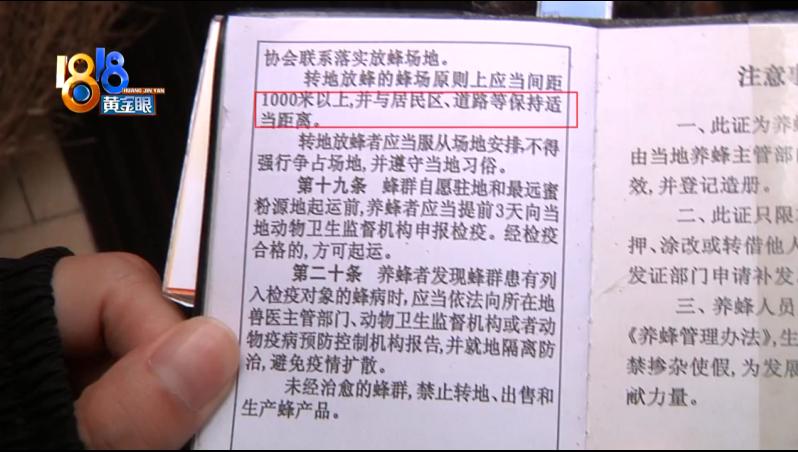 1818
HUANG JIN YAN
黄金眼
协会联系落实放蜂场地。
转地放蜂的蜂场原则上应当间距
1000米以上,并与居民区、道路等保持适
当距离。
转地放蜂者应当服从场地安排,不得
强行争占场地,并遵守当地习俗。
第十九条 蜂群自愿驻地和最远蜜
粉源地起运前,养蜂者应当提前3天向当
地动物卫生监督机构申报检疫。经检疫
合格的,方可起运。
第二十条 养蜂者发现蜂群患有列
入检疫对象的蜂病时,应当依法向所在地
兽医主管部门、动物卫生监督机构或者动
物疫病预防控制机构报告,并就地隔离防
治,避免疫情扩散。
未经治愈的蜂群,禁止转地、出售和
生产蜂产品。
注意事
一、此证为养蜂
由当地养蜂主管部门
效,并登记造册。
二、此证只限
押、涂改或转借他人
发证部门申请补发
三、养蜂人员
《养蜂管理办法》,生
禁掺杂使假,为发展
献力量。